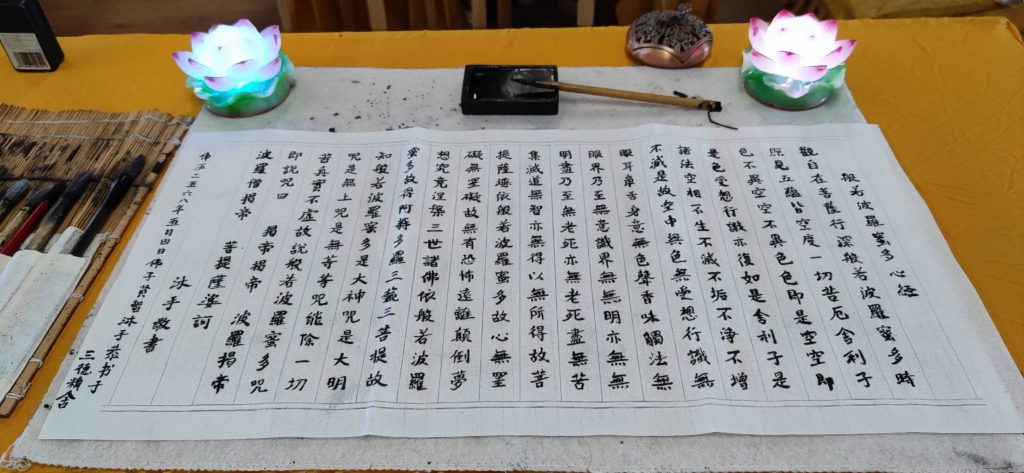 般若波羅蜜多心经
觀自在菩薩行深般若波羅蜜多時
照見五蘊皆空度一切苦厄舍利子
色不異空空不異色色即是空空即
是色受想行識亦復如是舍利子是
諸法空相不生不滅不垢不淨不增
不滅是故空中無色無受想行識無
眼耳鼻舌身意無色聲香味觸法無
眼界乃至無意識界無無明亦無無
明盡乃至無老死亦無老死盡無苦
集滅道無智亦無得以無所得故菩
提薩埵依般若波羅蜜多故心無罣
礙無罣礙故無有恐怖遠離顛倒夢
想究竟涅槃三世諸佛依般若波羅
蜜多故得阿耨多羅三藐三菩提故
知般若波羅蜜多是大神咒是大明
咒是無上咒是無等等咒能除一切
苦真實不虛故說般若波羅蜜多咒
即說咒曰 揭帝揭帝 波羅揭帝
波羅僧揭帝 菩提薩婆訶
沐手敬書
佛曆二五六八年五月四日佛子黃智沐手恭书于
三德精舍